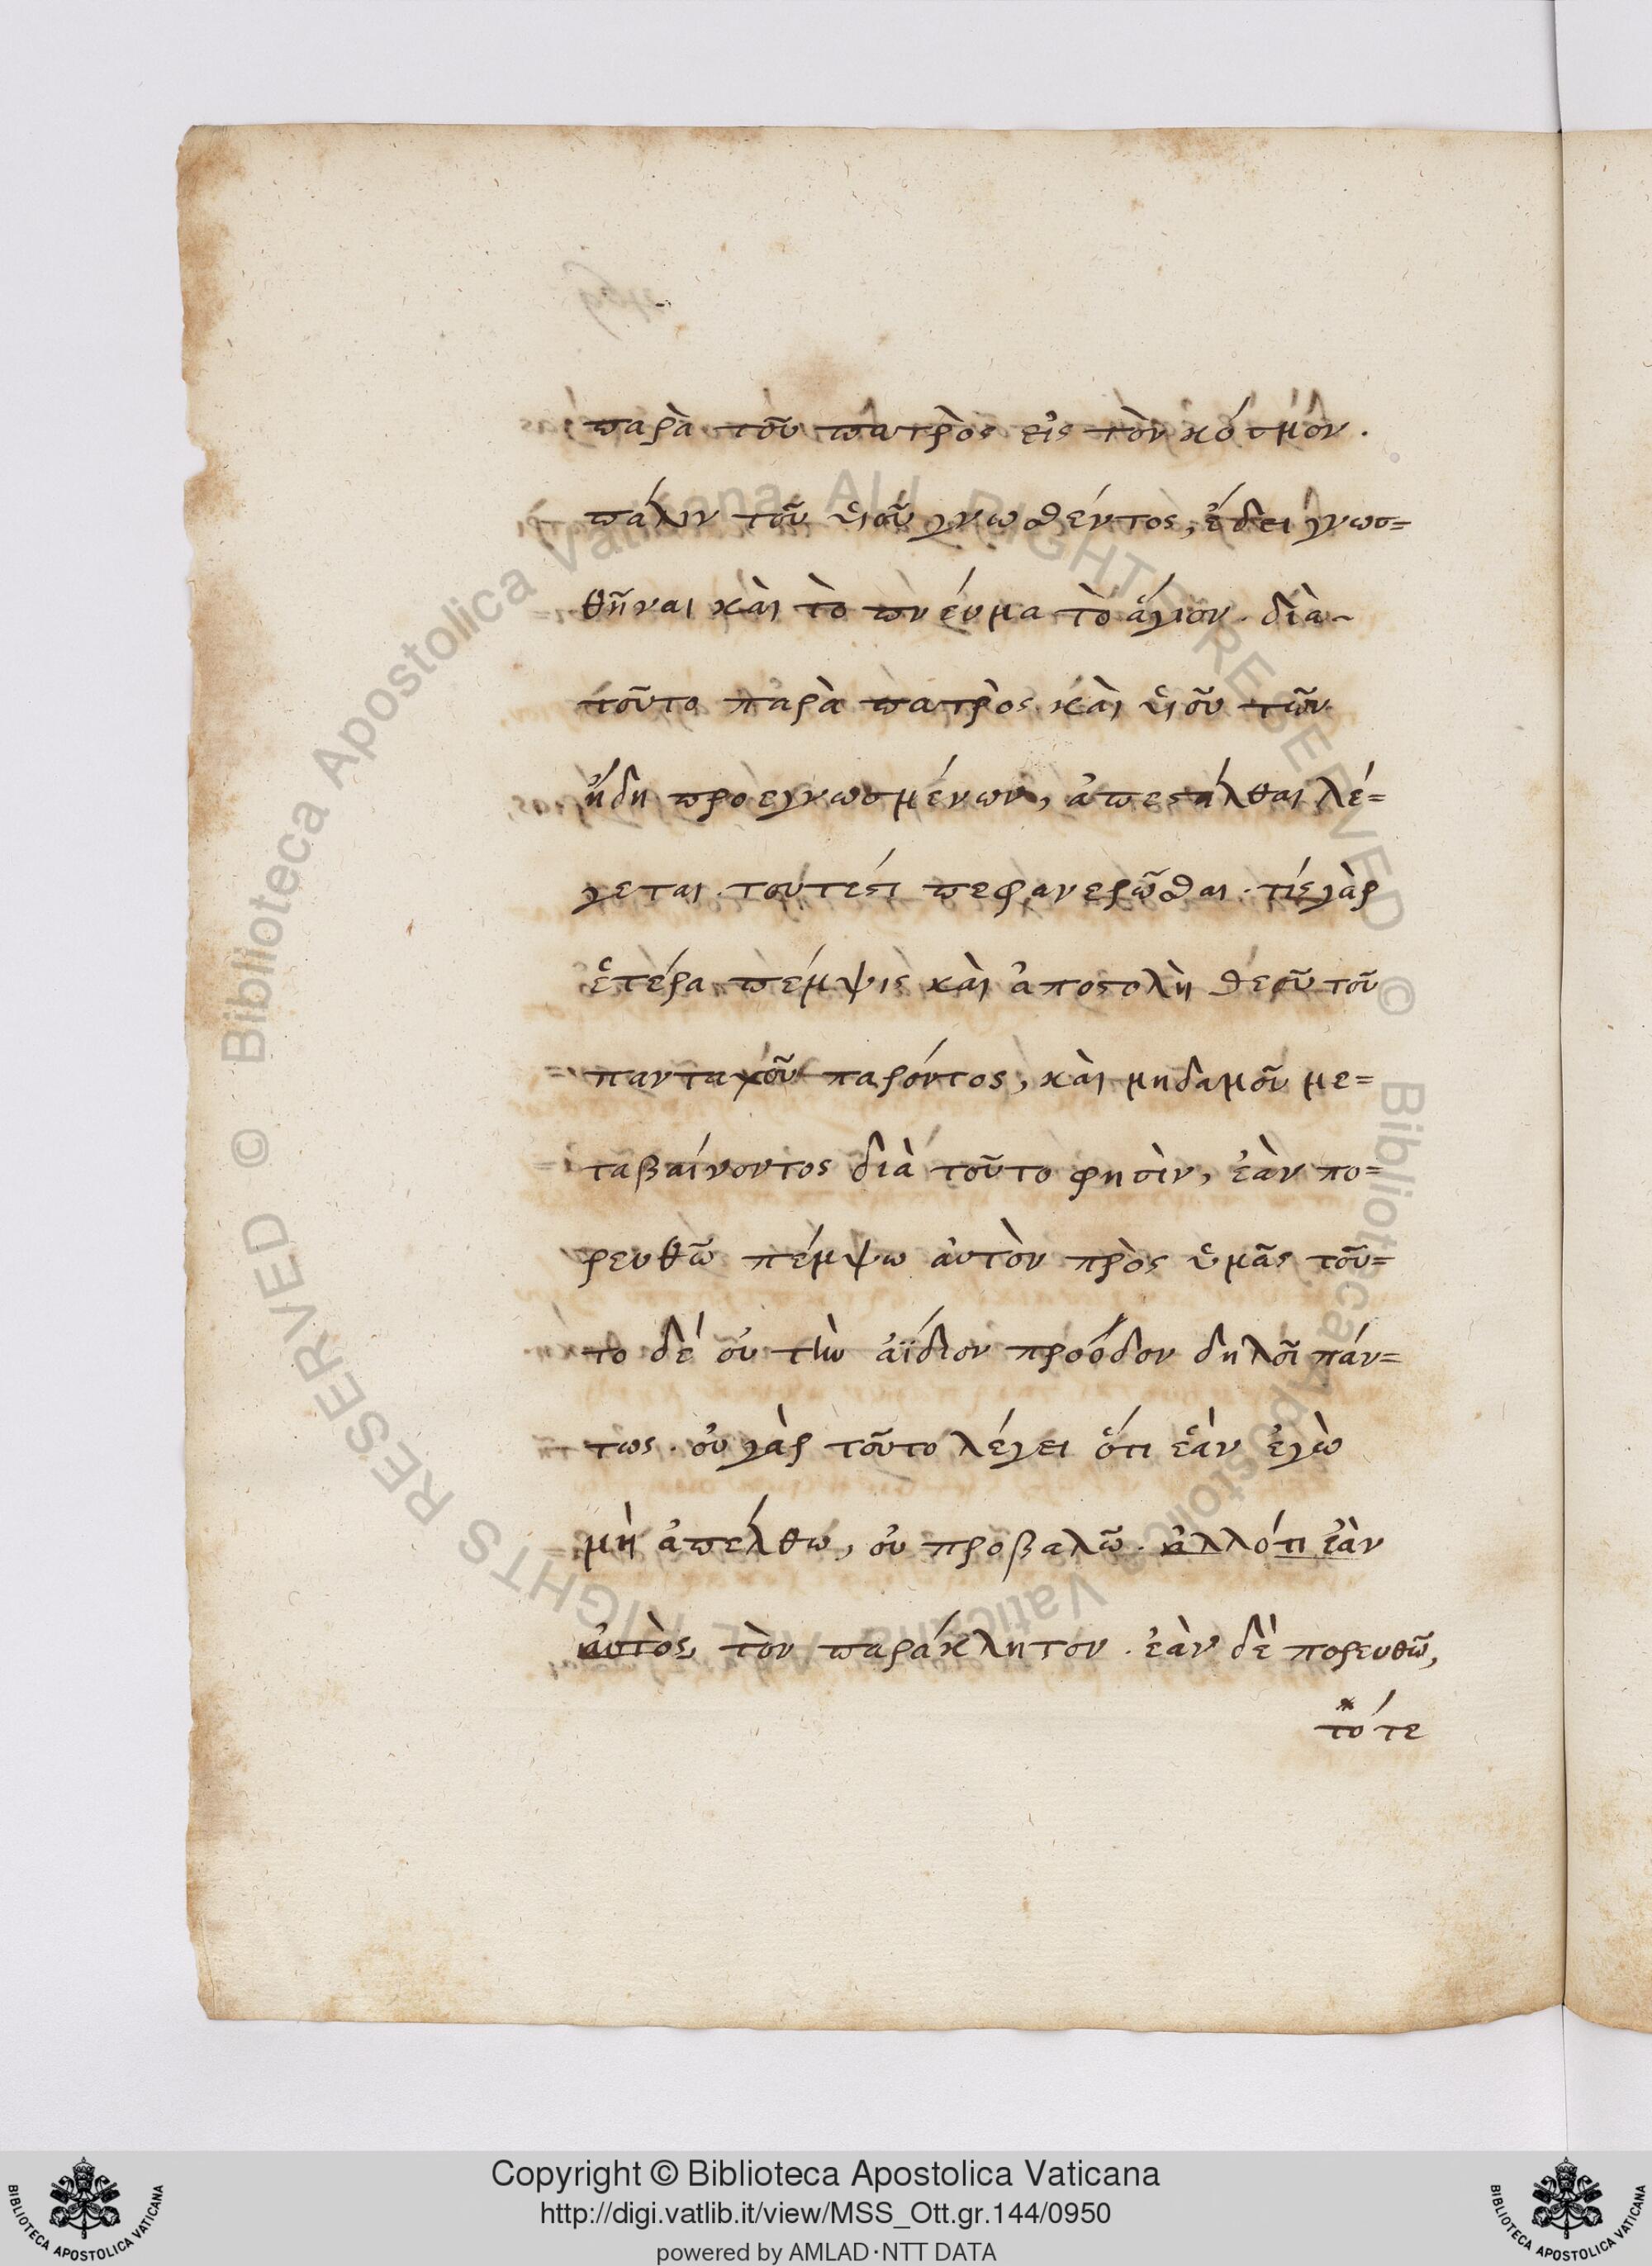 παρὰ τοῦ πατρὸς εἰς τὸν κόσμον.
πάλιν τοῦ ὑιοῦ γνωσθέντος, ἔδει γνωσ=
θῆναι κὰι τὸ πνέυμα τὸ ἅγιον. διὰ-
τοῦτο παρὰ πατρὸς κὰι ὑιοῦ τῶν
ἤδη προεγνωσμένων, ἀπεστάλθαι λέ=
γεται. τουτέστι πεφανερῶσθαι. τίς γὰρ
ἑτέρα πέμψις κὰι ἀποστολὴ θεοῦ τοῦ
πανταχοῦ παρόντος, κὰι μηδαμοῦ με=
ταβαίνοντος διὰ τοῦτο φησὶν, ἐὰν πο=
ρευθῶ πέμψω ἀυτὸν πρὸς ὑμᾶς τοῦ=
το δὲ οὐ τὴν ἀΐδιον πρόοδον δηλοῖ πάν=
τως. οὐ γὰρ τοῦτο λέγει ὅτι ἐὰν ἐγὼ
μὴ ἀπέλθω, οὐ προβαλῶ. ἀλλότι ἐὰν
ἀυτὸς, τὸν παράκλητον. ἐὰν δὲ πορευθῶ,
τότε
Copyright © Biblioteca Apostolica Vaticana
http://digi.vatlib.it/view/MSS_Ott.gr.144/0950
powered by AMLAD·NTT DATA
BIBLIOTECA APOSTOLICA VATICANA
BIBLIOTECA APOSTOLICA VATICANA
© Biblioteca Apostolica Vaticana ALL RIGHTS RESERVED © Biblioteca Apostolica Vaticana ALL RIGHTS RESERVED